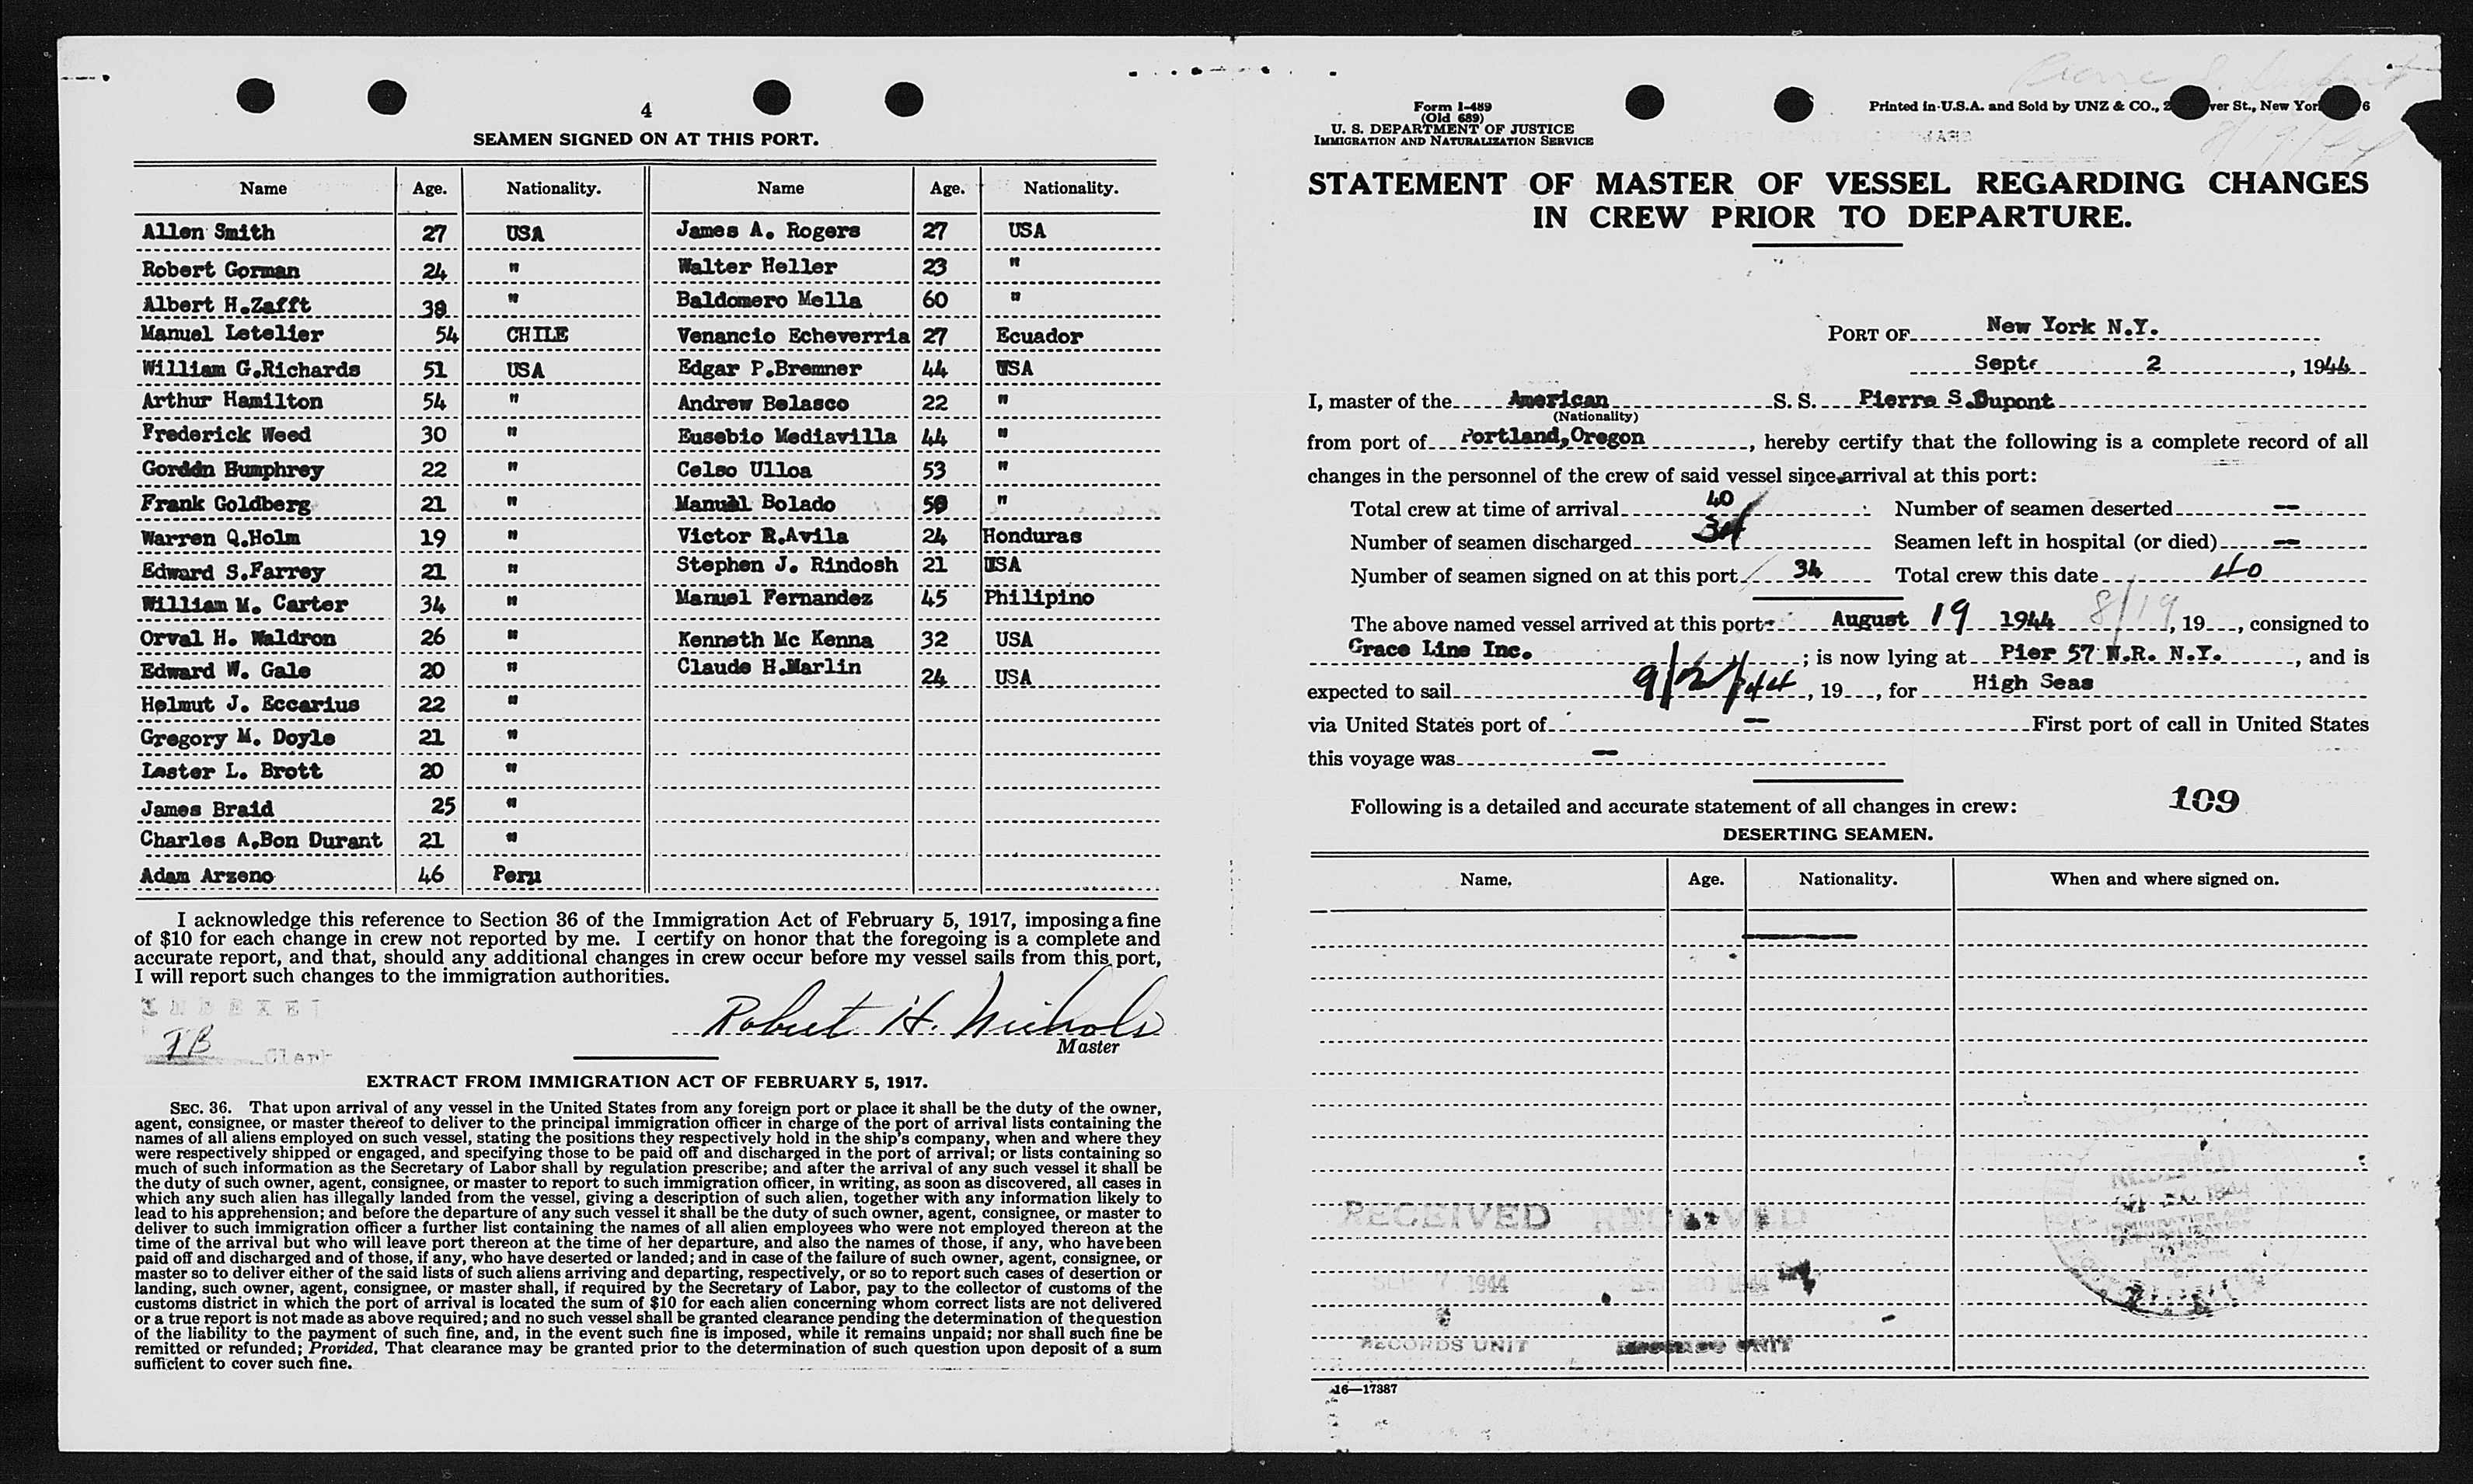 4
SEAMEN SIGNED ON AT THIS PORT.
Name Age. Nationality. Name Age. Nationality.
Allen Smith 27 USA James A. Rogers 27 USA
Robert Gorman 24 " Walter Heller 23 "
Albert H.Zafft 38 " Baldomero Mella 60 "
Manuel Letelier 54 CHILE Venancio Echeverria 27 Ecuador
William G.Richards 51 USA Edgar P.Bremner 44 USA
Arthur Hamilton 54 " Andrew Belasco 22 "
Frederick Weed 30 " Eusebio Mediavilla 44 "
Gorddn Humphrey 22 " Celso Ulloa 53 "
Frank Goldberg 21 " Manuel Bolado 50 "
Warren Q.Holm 19 " Victor R.Avila 24 Honduras
Edward S.Farrey 21 " Stephen J. Rindosh 21 USA
William M. Carter 34 " Manuel Fernandez 45 Philipino
Orval H. Waldron 26 " Kenneth Mc Kenna 32 USA
Edward W. Gale 20 " Claude H.Marlin 24 USA
Helmut J. Eccarius 22 "
Gregory M. Doyle 21 "
Lester L. Brott 20 "
James Braid 25 "
Charles A.Bon Durant 21 "
Adam Arzeno 46 Peru
I acknowledge this reference to Section 36 of the Immigration Act of February 5, 1917, imposing a fine
of $10 for each change in crew not reported by me. I certify on honor that the foregoing is a complete and
accurate report, and that, should any additional changes in crew occur before my vessel sails from this port,
I will report such changes to the immigration authorities.
Robert H. Nichols
Master
FB Clerk
EXTRACT FROM IMMIGRATION ACT OF FEBRUARY 5, 1917.
SEC. 36. That upon arrival of any vessel in the United States from any foreign port or place it shall be the duty of the owner,
agent, consignee, or master thereof to deliver to the principal immigration officer in charge of the port of arrival lists containing the
names of all aliens employed on such vessel, stating the positions they respectively hold in the ship's company, when and where they
were respectively shipped or engaged, and specifying those to be paid off and discharged in the port of arrival; or lists containing so
much of such information as the Secretary of Labor shall by regulation prescribe; and after the arrival of any such vessel it shall be
the duty of such owner, agent, consignee, or master to report to such immigration officer, in writing, as soon as discovered, all cases in
which any such alien has illegally landed from the vessel, giving a description of such alien, together with any information likely to
lead to his apprehension; and before the departure of any such vessel it shall be the duty of such owner, agent, consignee, or master to
deliver to such immigration officer a further list containing the names of all alien employees who were not employed thereon at the
time of the arrival but who will leave port thereon at the time of her departure, and also the names of those, if any, who have been
paid off and discharged and of those, if any, who have deserted or landed; and in case of the failure of such owner, agent, consignee, or
master so to deliver either of the said lists of such aliens arriving and departing, respectively, or so to report such cases of desertion or
landing, such owner, agent, consignee, or master shall, if required by the Secretary of Labor, pay to the collector of customs of the
customs district in which the port of arrival is located the sum of $10 for each alien concerning whom correct lists are not delivered
or a true report is not made as above required; and no such vessel shall be granted clearance pending the determination of the question
of the liability to the payment of such fine, and, in the event such fine is imposed, while it remains unpaid; nor shall such fine be
remitted or refunded; Provided, That clearance may be granted prior to the determination of such question upon deposit of a sum
sufficient to cover such fine.
Form I-489
(Old 689)
U. S. DEPARTMENT OF JUSTICE
IMMIGRATION AND NATURALIZATION SERVICE
Printed in U.S.A. and Sold by UNZ & CO., 2 ver St., New Yor 6
STATEMENT OF MASTER OF VESSEL REGARDING CHANGES
IN CREW PRIOR TO DEPARTURE.
PORT OF New York N.Y.
Sept. 2, 1944
I, master of the American S. S. Pierre S.Dupont
(Nationality)
from port of Portland,Oregon, hereby certify that the following is a complete record of all
changes in the personnel of the crew of said vessel since arrival at this port:
Total crew at time of arrival 40 Number of seamen deserted —
Number of seamen discharged 34 Seamen left in hospital (or died) —
Number of seamen signed on at this port 34 Total crew this date 40
The above named vessel arrived at this port August 19 1944 8/19, 19, consigned to
Grace Line Inc. ; is now lying at Pier 57 N.R. N.Y., and is
expected to sail 9/2/44, 19, for High Seas
via United States port of — First port of call in United States
this voyage was —
Following is a detailed and accurate statement of all changes in crew: 109
DESERTING SEAMEN.
Name. Age. Nationality. When and where signed on.
RECEIVED RECEIVED RECEIVED
1944 1944
RECORDS UNIT UNIT
16—17387